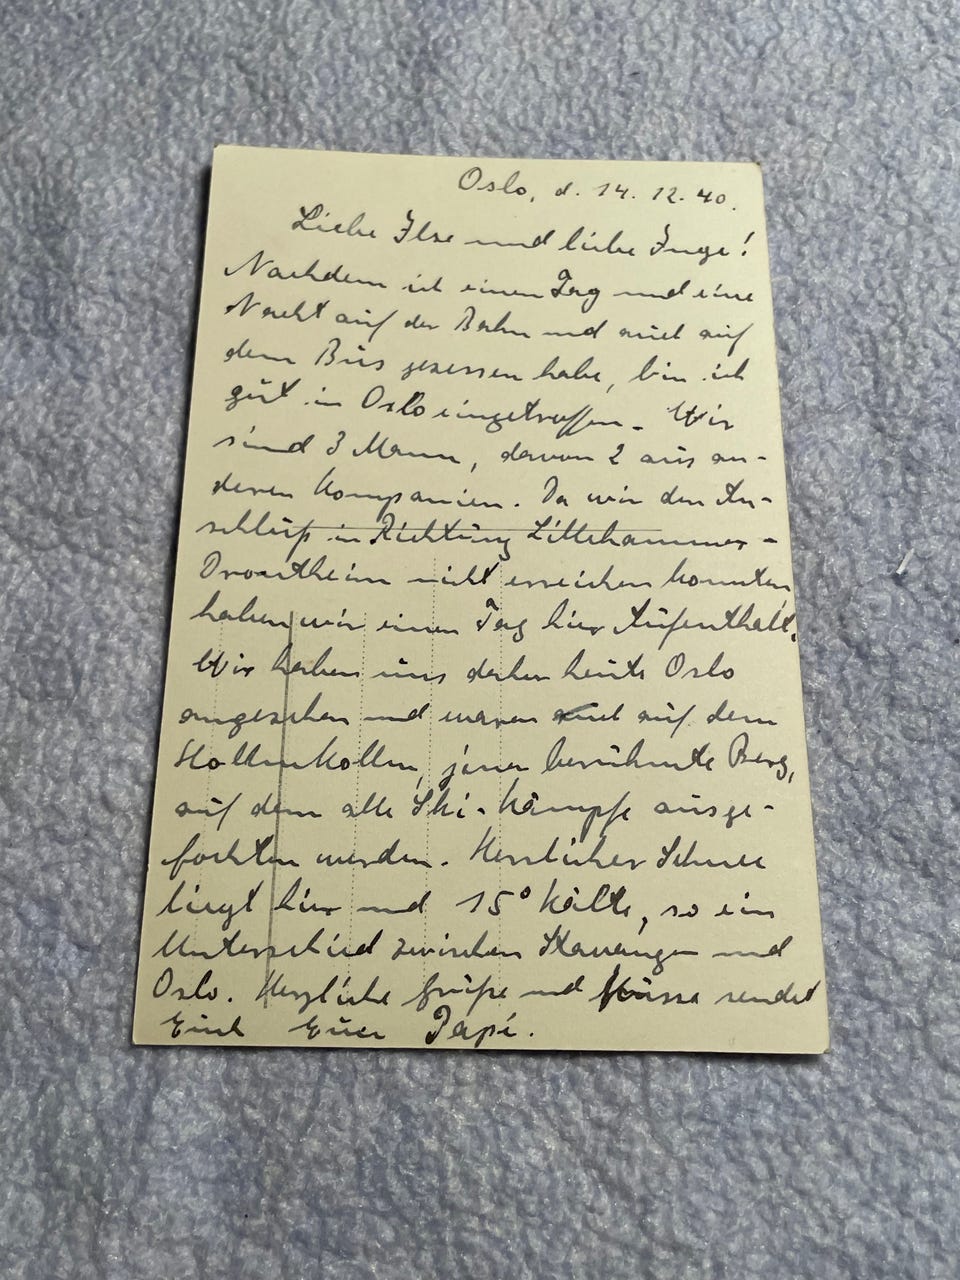 Oslo, d. 14. 12. 40.
Liebe Ilse und liebe Inge!
Nachdem ich einen Tag und eine
Nacht auf der Bahn und auch auf
dem Bus gesessen habe, bin ich
gut in Oslo eingetroffen. Wir
sind 3 Mann, davon 2 aus an-
deren Kompanien. Da wir den An-
schluß in Richtung Lillehammer -
Drontheim nicht erreichen konnten,
haben wir einen Tag hier Aufenthalt.
Wir haben uns daher heute Oslo
angesehen und waren auf dem
Hollenkollen, jener berühmte Berg,
auf dem alle Ski-Kämpfe ausge-
fochten werden. Herrlicher Schnee
liegt hier und 15° Kälte, so ein
Unterschied zwischen Stavanger und
Oslo. Herzliche Grüße und Küsse sendet
Euch Euer Papi.